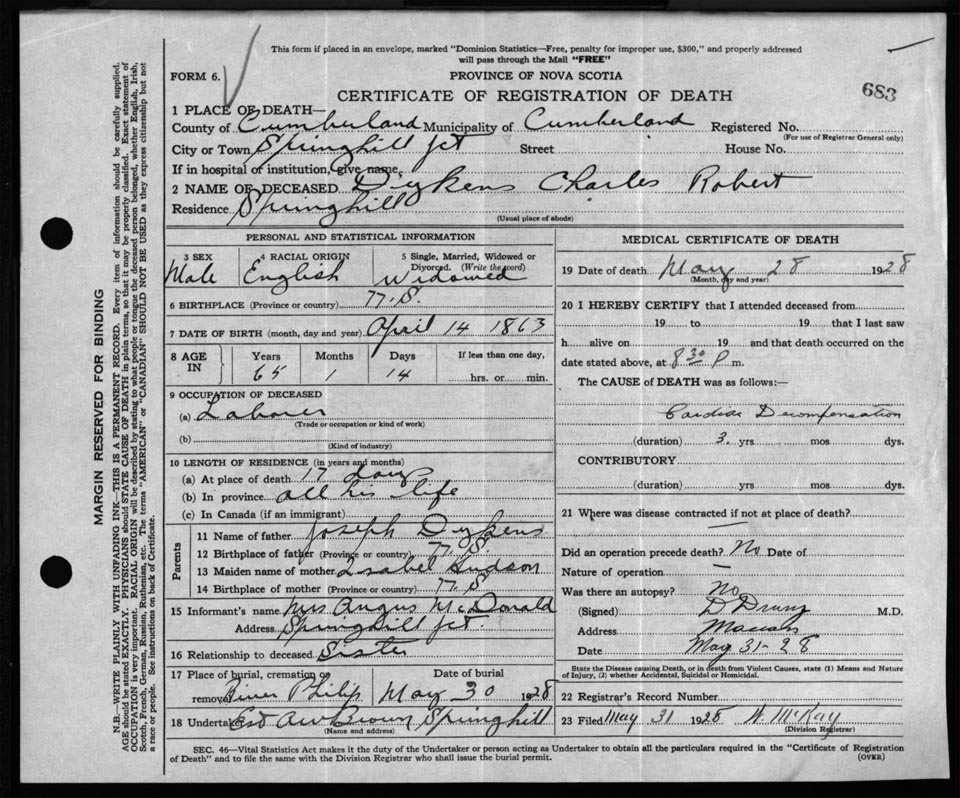 This form if placed in an envelope, marked "Dominion Statistics—Free, penalty for improper use, $300," and properly addressed
will pass through the Mail "FREE"
FORM 6.
PROVINCE OF NOVA SCOTIA
CERTIFICATE OF REGISTRATION OF DEATH
683
1 PLACE OF DEATH—
County of Cumberland Municipality of Cumberland Registered No.
(For use of Registrar General only)
City or Town Springhill Jct Street House No.
If in hospital or institution, give name,
2 NAME OF DECEASED Dykens Charles Robert
Residence Springhill
(Usual place of abode)
PERSONAL AND STATISTICAL INFORMATION
3 SEX 4 RACIAL ORIGIN 5 Single, Married, Widowed or
Divorced. (Write the word)
Male English Widowed
6 BIRTHPLACE (Province or country) N.S.
7 DATE OF BIRTH (month, day and year) April 14 1863
8 AGE IN Years Months Days If less than one day,
65 1 14 hrs. or min.
9 OCCUPATION OF DECEASED
(a) Laborer
(Trade or occupation or kind of work)
(b)
(Kind of industry)
10 LENGTH OF RESIDENCE (in years and months)
(a) At place of death 17 days
(b) In province all his life
(c) In Canada (if an immigrant)
Parents
11 Name of father Joseph Dykens
12 Birthplace of father (Province or country) N.S.
13 Maiden name of mother Isabel Hudson
14 Birthplace of mother (Province or country) N.S
15 Informant's name Mrs Angus McDonald
Address Springhill Jct.
16 Relationship to deceased Sister
17 Place of burial, cremation or Date of burial
removal River Philip May 30 1928
18 Undertaker Est AW Brown Springhill
(Name and address)
MEDICAL CERTIFICATE OF DEATH
19 Date of death May 28 1928
(Month, day and year)
20 I HEREBY CERTIFY that I attended deceased from
19 to 19 that I last saw
h alive on 19 and that death occurred on the
date stated above, at 8 30 P m.
The CAUSE of DEATH was as follows:—
Cardiac Decompensation
(duration) 3 yrs mos dys.
CONTRIBUTORY
(duration) yrs mos dys.
21 Where was disease contracted if not at place of death?
Did an operation precede death? No Date of
Nature of operation —
Was there an autopsy? No
(Signed) D Drury M.D.
Address Maccan
Date May 31-28
State the Disease causing Death, or in death from Violent Causes, state (1) Means and Nature
of Injury, (2) whether Accidental, Suicidal or Homicidal.
22 Registrar's Record Number
23 Filed May 31 1928 N. McKay
(Division Registrar)
SEC. 46—Vital Statistics Act makes it the duty of the Undertaker or person acting as Undertaker to obtain all the particulars required in the "Certificate of Registration
of Death" and to file the same with the Division Registrar who shall issue the burial permit.
(OVER)
MARGIN RESERVED FOR BINDING
N.B.—WRITE PLAINLY WITH UNFADING INK—THIS IS A PERMANENT RECORD. Every item of information should be carefully supplied.
AGE should be stated EXACTLY. PHYSICIANS should STATE CAUSE OF DEATH in plain terms, so that it may be properly classified. Exact statement of
OCCUPATION is very important. RACIAL ORIGIN will be described by stating to what people or tongue the deceased person belonged, whether English, Irish,
Scotch, French, German, Russian, Ruthenian, etc. The terms "AMERICAN" or "CANADIAN" SHOULD NOT BE USED as they express citizenship but not
a race or people. See instructions on back of Certificate.